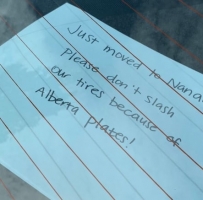 Just moved to Nana
Please don't slash
our tires because of
Alberta plates!